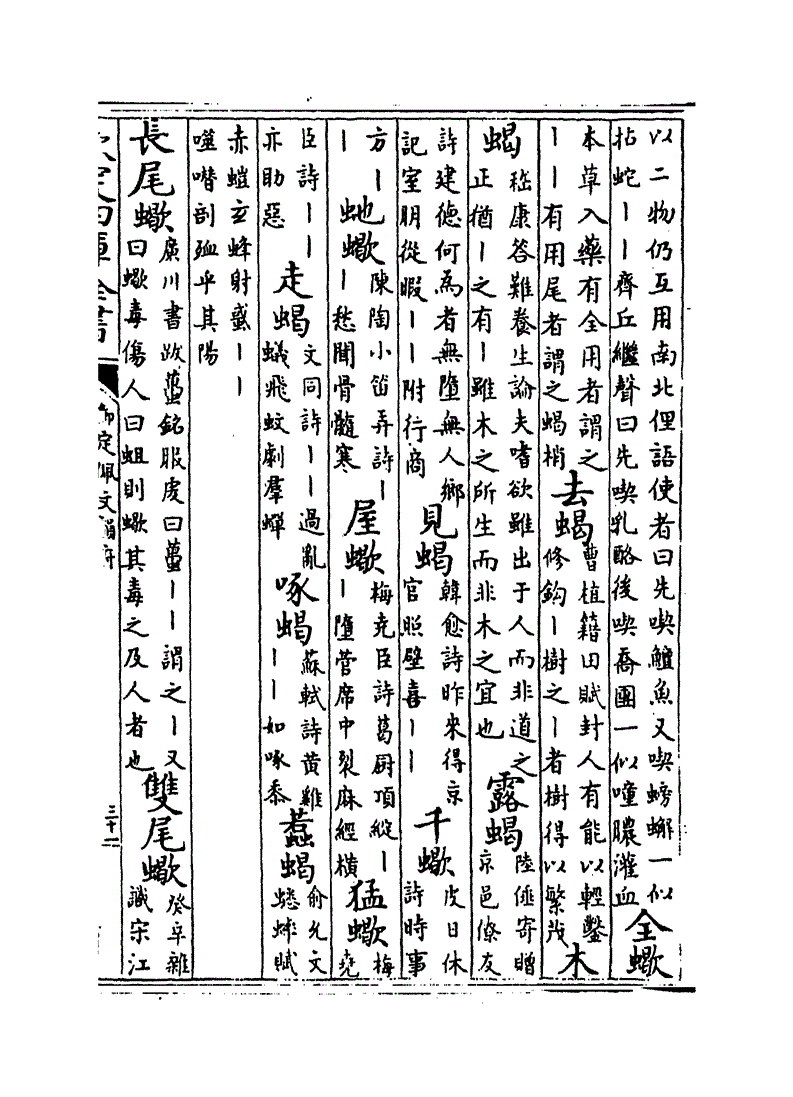 以二物仍互用南北俚語使者曰先喫鱣魚又喫螃蠏一似
拈蛇｜｜齊丘繼聲曰先喫乳酪後喫喬團一似噇膿灌血 全蠍
本草入藥有全用者謂之
｜｜有用尾者謂之蝎梢 去蝎 曹植籍田賦封人有能以輕鑿
修鈎｜樹之｜者樹得以繁茂 木
蝎 嵇康答難養生論夫嗜欲雖出于人而非道之
正猶｜之有｜雖木之所生而非木之宜也 露蝎 陸倕寄贈
京邑僚友
詩建德何為者無墮無人鄉
記室朋從暇｜｜附行商 見蝎 韓愈詩昨來得京
官照壁喜｜｜ 千蠍 皮日休
詩時事
方｜
｜ 虵蠍 陳陶小笛弄詩｜
｜愁聞骨髓寒 屋蠍 梅堯臣詩葛厨頂縱｜
｜墮菅席中裂麻經橫 猛蠍 梅堯
臣詩｜｜
亦助惡 走蝎 文同詩｜｜過亂
蟻飛蚊劇羣蟬 啄蝎 蘇軾詩黃雞
｜｜如啄黍 蠚蝎 俞允文
蟋蟀賦
赤螘玄蜂射螫｜｜
噬嗜剖殈乎其陽
長尾蠍 廣川書跋蠆銘服虔曰蠆｜｜謂之｜又
曰蠍毒傷人曰蛆則蠍其毒之及人者也 雙尾蠍 癸辛雜
識宋江
欽定四庫全書
御定佩文韻府
三十二